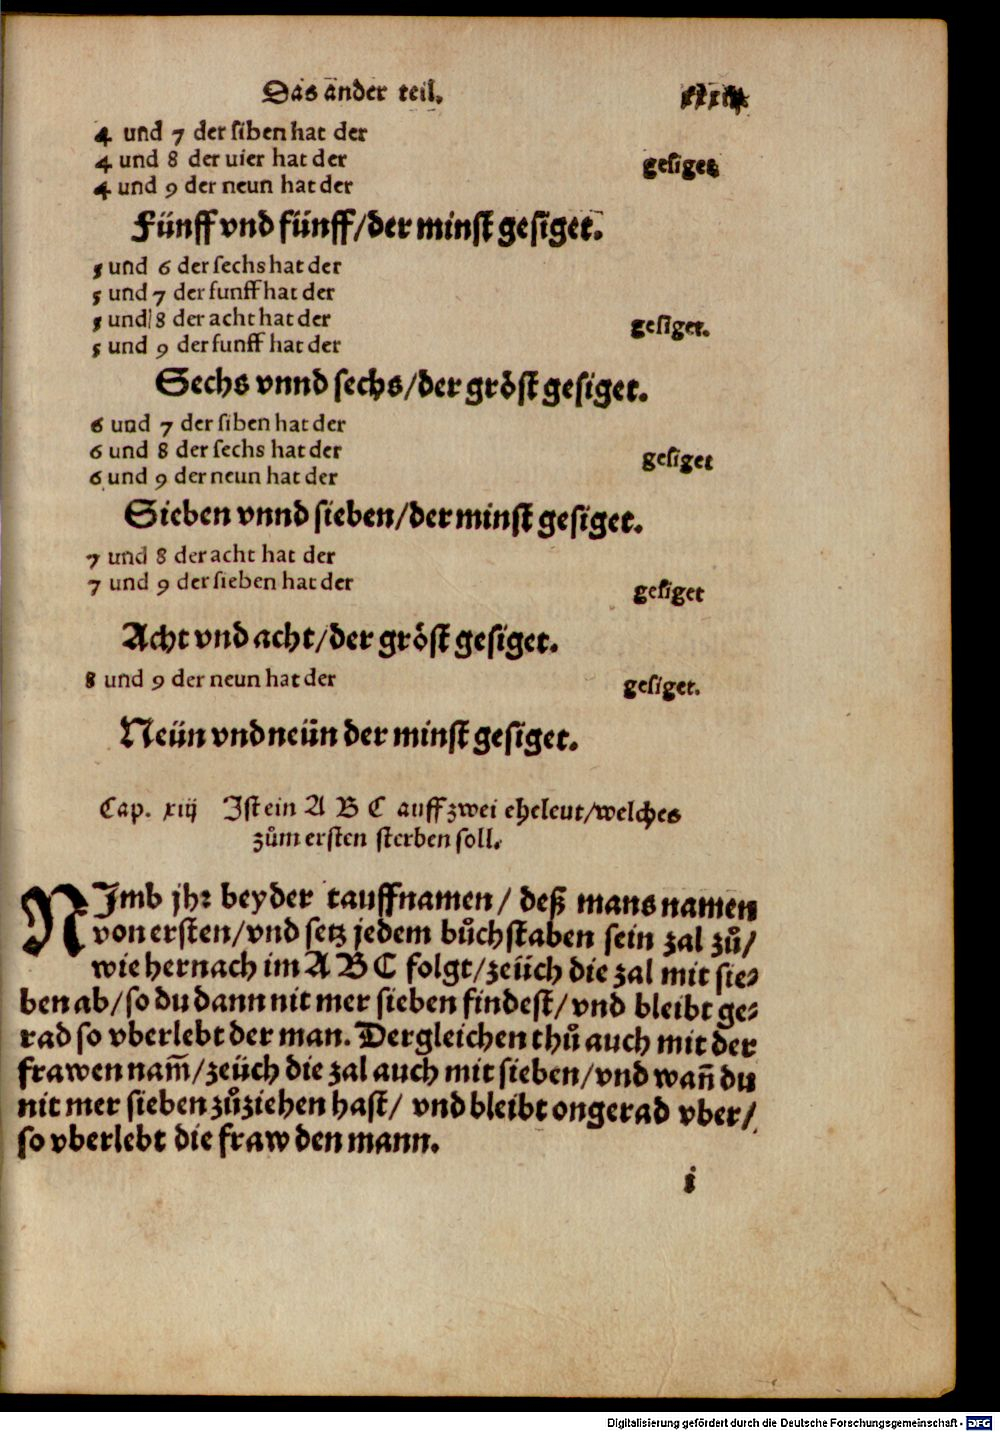 Das ander teil.
4 und 7 der siben hat der
4 und 8 der vier hat der
gesiget
4 und 9 der neun hat der
Fünff vnd fünff/der minst gesiget.
5 und 6 der sechs hat der
5 und 7 der funff hat der
5 und 8 der acht hat der
gesiget.
5 und 9 der funff hat der
Sechs vnnd sechs/der gröst gesiget.
6 und 7 der siben hat der
6 und 8 der sechs hat der
gesiget
6 und 9 der neun hat der
Sieben vnnd sieben/der minst gesiget.
7 und 8 der acht hat der
7 und 9 der sieben hat der
gesiget
Acht vnd acht/der gröst gesiget.
8 und 9 der neun hat der
gesiget.
Neün vnd neün der minst gesiget.
Cap. xiij Ist ein A B C auff zwei eheleut/welches
zům ersten sterben soll.
NImb jhr beyder tauffnamen/ deß mans namen
von ersten/vnd setz jedem bůchstaben sein zal zů/
wie hernach im A B C folgt/zeüch die zal mit sie⸗
ben ab/so du dann nit mer sieben findest/vnd bleibt ge⸗
rad so vberlebt der man. Dergleichen thů auch mit der
frawen nam̄/zeüch die zal auch mit sieben/vnd wañ du
nit mer sieben zůziehen hast/ vnd bleibt ongerad vber/
so vberlebt die fraw den mann.
i
Digitalisierung gefördert durch die Deutsche Forschungsgemeinschaft - DFG